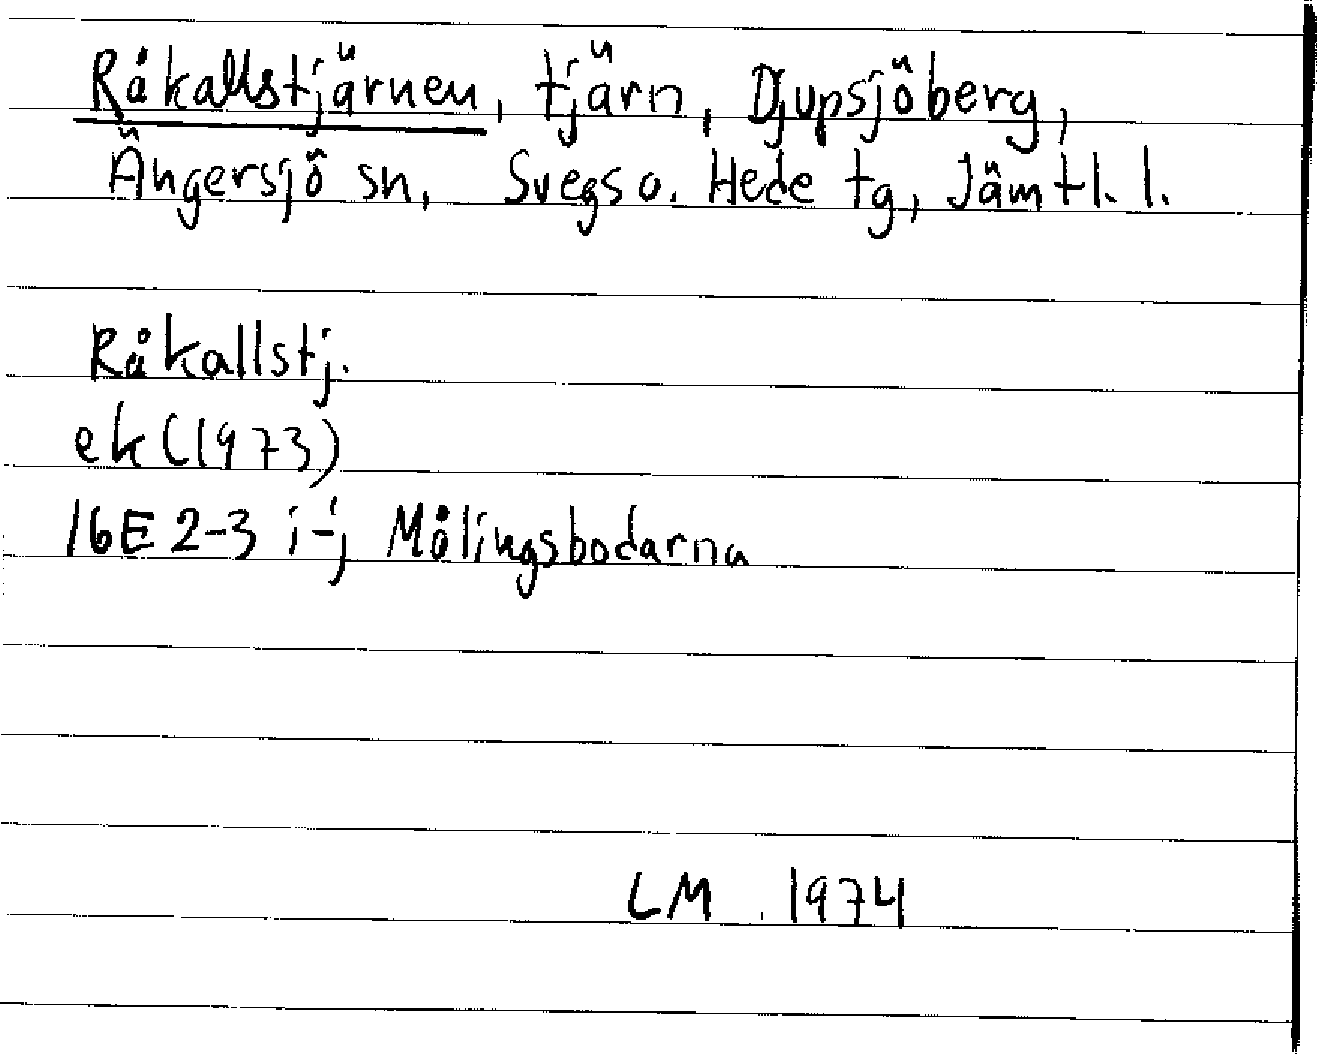 Råkallstjärnen, tjärn, Djupsjöberg,
Ängersjö sn, Svegs o. Hede tg, Jämtl. l.
Råkallstj.
ek (1973)
16E 2-3 i-j Målingsbodarna
LM 1974